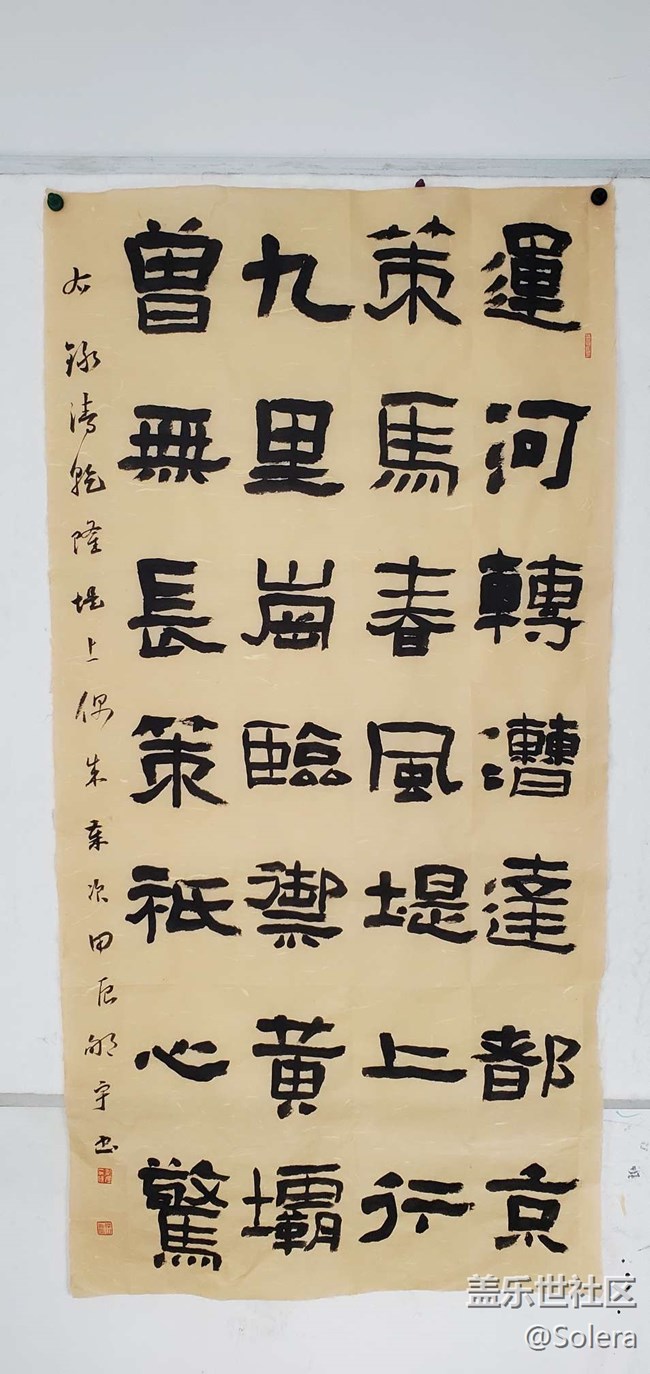 運河轉漕達都京
策馬春風堤上行
九里崗臨禦黃壩
曾無長策祇心驚
右錄清乾隆堤上偶成歲次甲辰宇书
盖乐世社区
@Solera